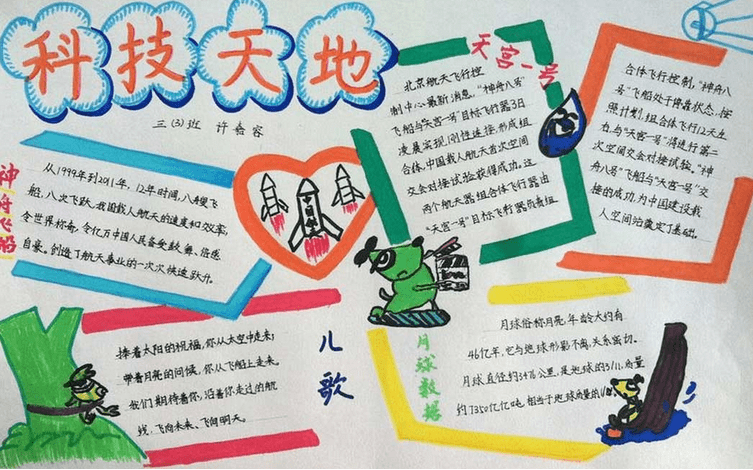 科技天地
三(3)班 许春容
神舟飞船
从1999年到2011年,12年时间,八艘飞
船,八次飞跃,我国载人航天的速度和效率,
令世界称奇,令亿万中国人民备受鼓舞、倍感
自豪,创造了航天事业的一次次快速跃升。
中国航天
天宫一号
北京航天飞行控
制中心最新消息,"神舟八号"
飞船与"天宫一号"目标飞行器3日
凌晨实现刚性连接,形成组
合体,中国载人航天首次空间
交会对接试验获得成功。这
两个航天器组合体飞行器由
"天宫一号"目标飞行器负责组
合体飞行控制,"神舟八
号"飞船处于停靠状态,按
照计划,组合体飞行12天左
右,与"天宫一号"将进行第二
次空间交会对接试验。"神
舟八号"飞船与"天宫一号"交
接的成功,为中国建设载
人空间站奠定了基础。
儿歌
捧着太阳的祝福,你从太空中走来;
带着月亮的问候,你从飞船上走来。
我们期待着你,沿着你走过的航
线,飞向未来、飞向明天。
月球数据
月球俗称月亮,年龄大约有
46亿年,它与地球形影不离,关系密切。
月球直径约3476公里,是地球的3/11,质量
约7350亿亿吨,相当于地球质量的1/81